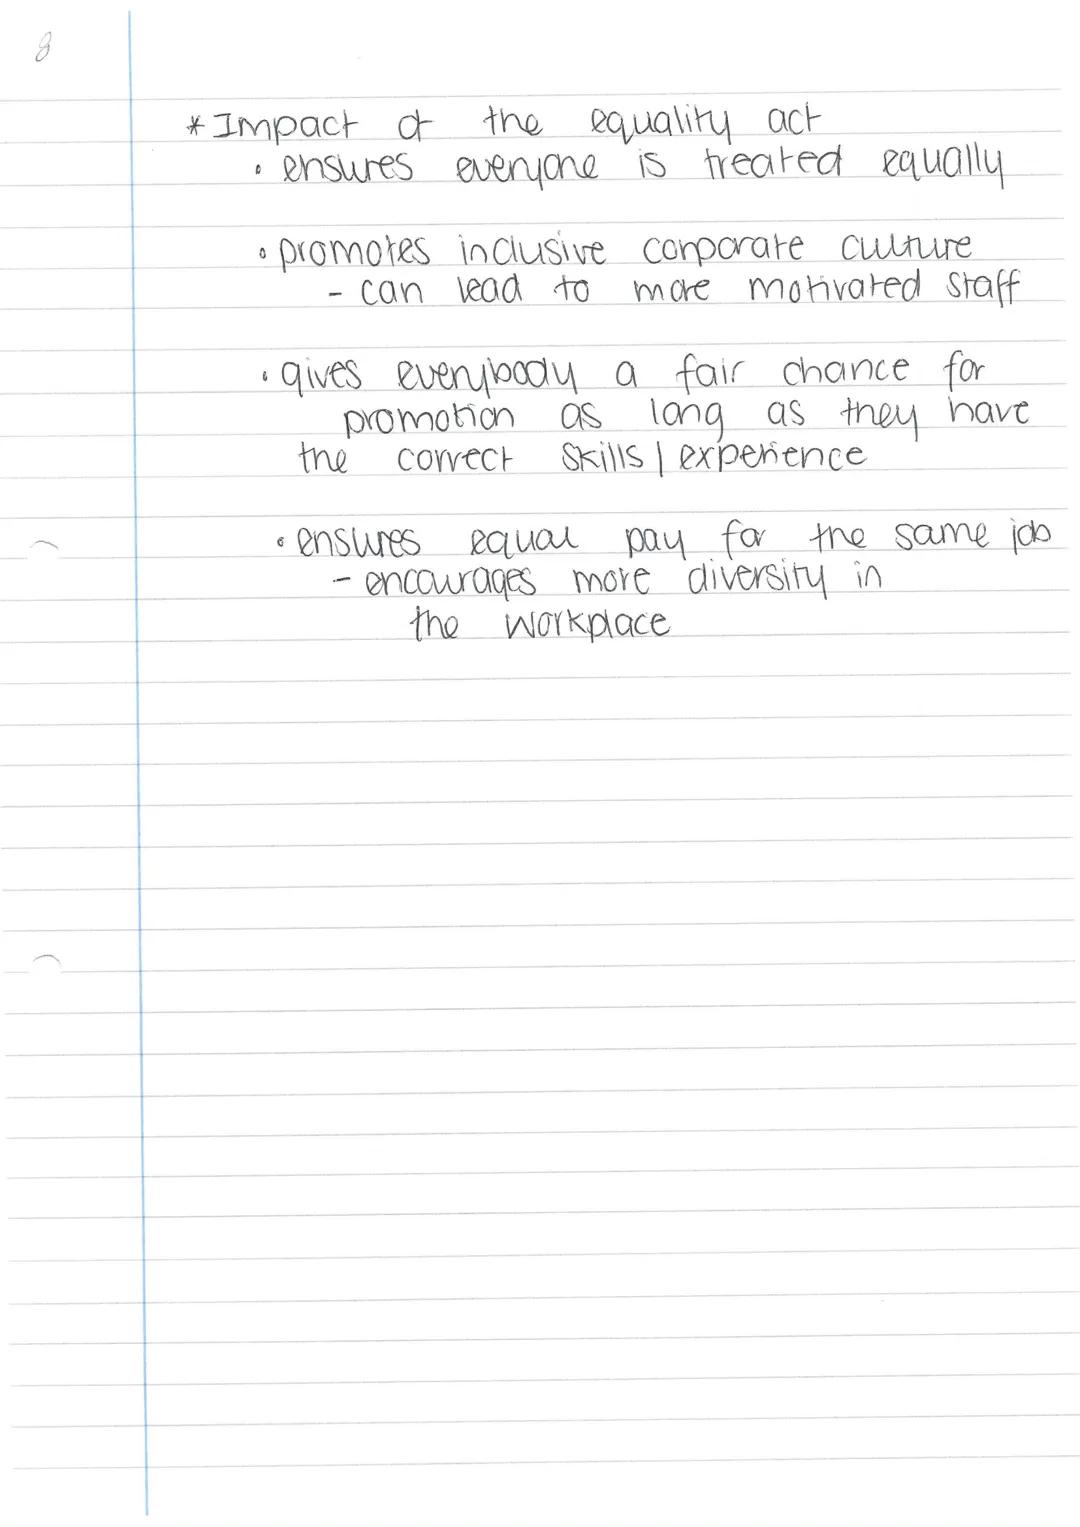 8
* Impact of the equality act
• ensures everyone is treated equally
• promotes inclusive corporate culture
- can lead to more motivated staff
• gives everybody a fair chance for
promotion as long as they have
the correct skills | experience
• ensures equal pay for the same job
- encourages more diversity in
the workplace